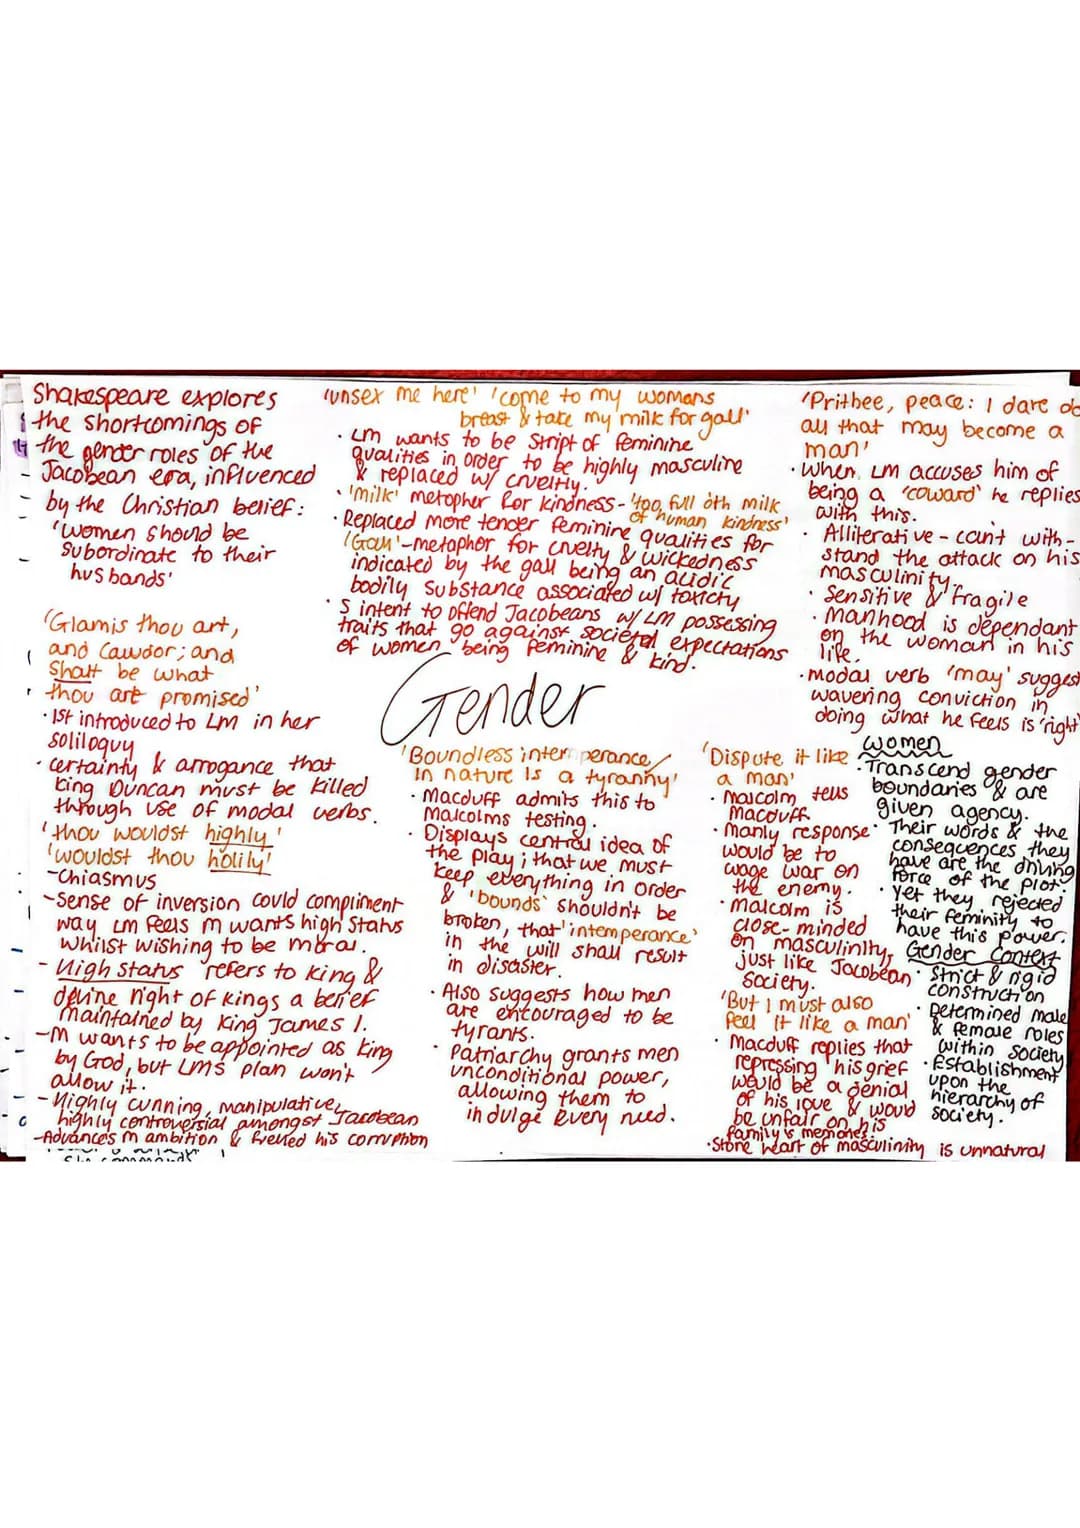 Shakespeare explores
the shortcomings of
the gender roles of the
Jacobean era, influenced
by the Christian belief:
'women should be
subordinate to their
husbands'
'Glamis thou art,
and Cawdor; and
shalt be what
thou art promised'
· 1st introduced to LM in her
soliloquy
· certainty & arrogance that
King Duncan must be killed
through use of modal verbs.
'thou wouldst highly'
'wouldst thou holily'
-Chiasmus
-Sense of inversion could compliment
way LM feels M wants high status
whilst wishing to be moral.
- High status refers to King &
devine right of kings a belief
maintained by King James I.
-M wants to be appointed as king
by God, but LMs plan won't
allow it.
- Highly cunning, manipulative,
highly controversial amongst Jacobean
-Advances M ambition & his corruption
'unsex me here' 'come to my womans
breast & take my milk for gall'
· LM wants to be stript of feminine
qualities in order to be highly masculine
& replaced w/ cruelty.
· 'milk' metopher for kindness - 'too full oth milk
of human kindness'
· Replaced more tender feminine qualities for
'Gall' - metaphor for cruelty & wickedness
indicated by the gall being an acidic
bodily substance associated w/ toxicty
· S intent to offend Jacobeans w/ LM possessing
traits that go against societal expectations
of women being feminine & kind.
Gender
'Boundless intemperance/
in nature is a tyranny'
· Macduff admits this to
Malcolms testing.
· Displays central idea of
the play; that we must
keep everything in order
& 'bounds' shouldn't be
broken, that 'intemperance'
in the will shall result
in disaster.
· Also suggests how men
are encouraged to be
tyrants.
· Patriarchy grants men
unconditional power,
allowing them to
indulge every need.
'Prithee, peace: I dare do
all that may become a
man'
· When LM accuses him of
being a 'coward' he replies
with this.
· Alliterative - can't with-
stand the attack on his
masculinity.
· Sensitive & fragile
· Manhood is dependant
on the woman in his
life.
· Modal verb 'may' suggest
wavering conviction in
doing what he feels is 'right'
'Dispute it like
a man'
· Malcolm tells
Macduff.
· Manly response
would be to
wage war on
the enemy.
· Malcolm is
close-minded
on masculinity,
just like Jacobean
society.
'But I must also
feel it like a man'
· Macduff replies that
repressing his grief
would be a denial
of his love & would
be unfair on his
family's memories.
· Stone heart of masculinity is unnatural
Women
· Transcend gender
boundaries & are
given agency.
· Their words & the
consequences they
have are the driving
force of the plot.
· Yet they rejected
their feminity to
have this power.
Gender Context
· Strict & rigid
construction
· Determined male
& female roles
within society
· Establishment
upon the
hierarchy of
society.